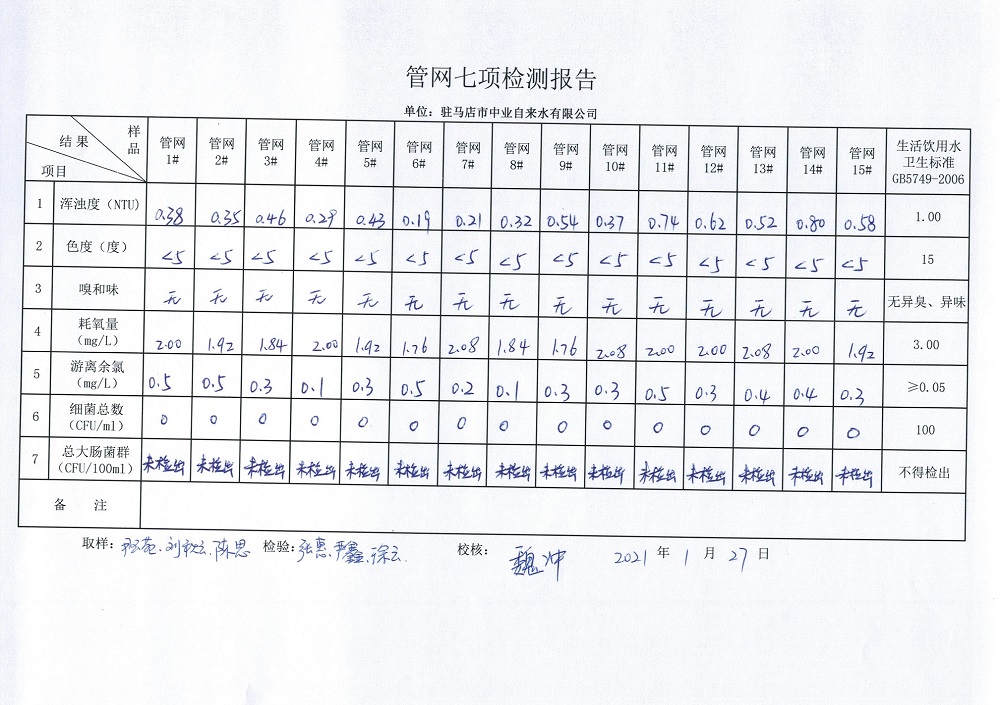 管网七项检测报告
单位：驻马店市中业自来水有限公司
结果 样品 项目 管网1# 管网2# 管网3# 管网4# 管网5# 管网6# 管网7# 管网8# 管网9# 管网10# 管网11# 管网12# 管网13# 管网14# 管网15# 生活饮用水卫生标准GB5749-2006
1 浑浊度（NTU） 0.38 0.35 0.46 0.29 0.43 0.19 0.21 0.32 0.54 0.37 0.74 0.62 0.52 0.80 0.58 1.00
2 色度（度） <5 <5 <5 <5 <5 <5 <5 <5 <5 <5 <5 <5 <5 <5 <5 15
3 嗅和味 无 无 无 无 无 无 无 无 无 无 无 无 无 无 无 无异臭、异味
4 耗氧量（mg/L） 2.00 1.92 1.84 2.00 1.92 1.76 2.08 1.84 1.76 2.08 2.00 2.00 2.08 2.00 1.92 3.00
5 游离余氯（mg/L） 0.5 0.5 0.3 0.1 0.3 0.5 0.2 0.1 0.3 0.3 0.5 0.3 0.4 0.4 0.3 ≥0.05
6 细菌总数（CFU/ml） 0 0 0 0 0 0 0 0 0 0 0 0 0 0 0 100
7 总大肠菌群（CFU/100ml） 未检出 未检出 未检出 未检出 未检出 未检出 未检出 未检出 未检出 未检出 未检出 未检出 未检出 未检出 未检出 不得检出
备注
取样： 陈思 检验：张惠、严鑫、徐云 校核： 魏冲 2021年1月27日